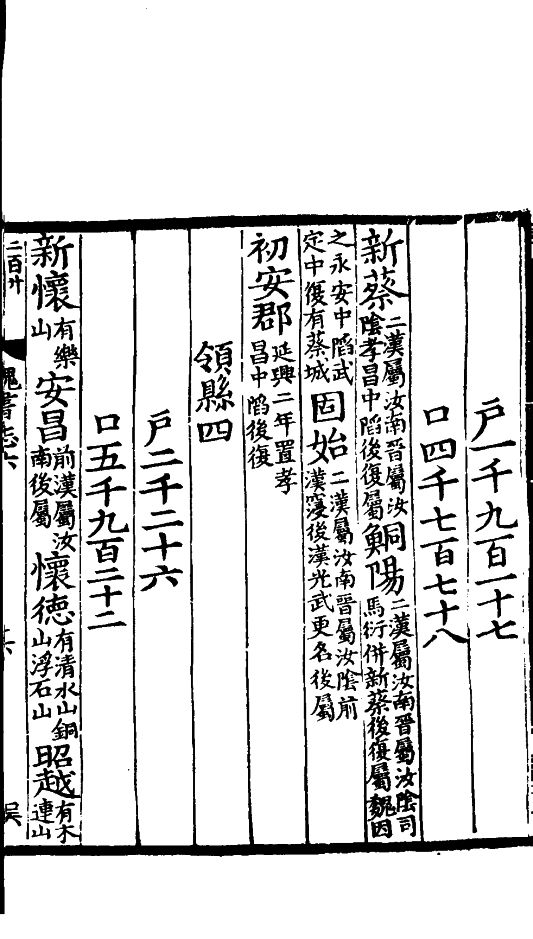 戶一千九百一十七
口四千七百七十八
新蔡二漢屬汝南晉屬汝陰孝昌中陷後復屬鮦陽二漢屬汝南晉屬汝陰司馬衍併新蔡後復屬魏因
之永安中陷武定中復有蔡城固始二漢屬汝南晉屬汝陰前漢寑後漢光武更名後屬
初安郡延興二年置孝昌中陷後復
領縣四
戶二千二十六
口五千九百二十二
新懷有樂山安昌前漢屬汝南後屬懷德有清水山銅山浮石山昭越有木連山
二百廾
魏書志六
吳